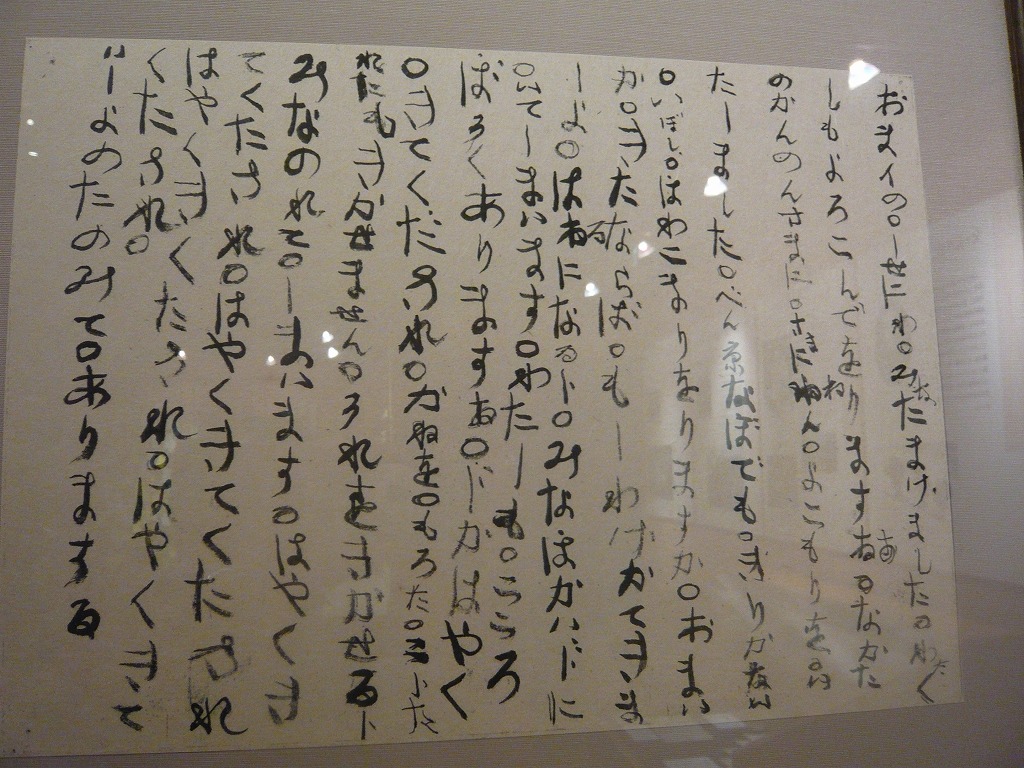 おまイの〇しせにわ〇みなたまけました〇わたく
しもよろこんでをりまする〇なかた
のかんのんさまに〇さまにねん〇よこもりを〇い
たしました〇べん京なぼでも〇きりかない
〇いぼし〇ほわこまりをりますか〇おまい
か〇きたならば〇もしわけかてきま
しよ〇はるになるト〇みなほかいドに
〇いてしまいます〇わたしも〇こころ
ぼそくありまする〇ドかはやく
〇きてくだされ〇かねを〇もろた〇こトた
れにもきかせません〇それをきかせるト
みなのれて〇しまいます〇はやくき
てくたされ〇はやくきてくたされ
はやくきてくたされ〇はやくきて
くたされ〇
いしよのたのみて〇ありまする